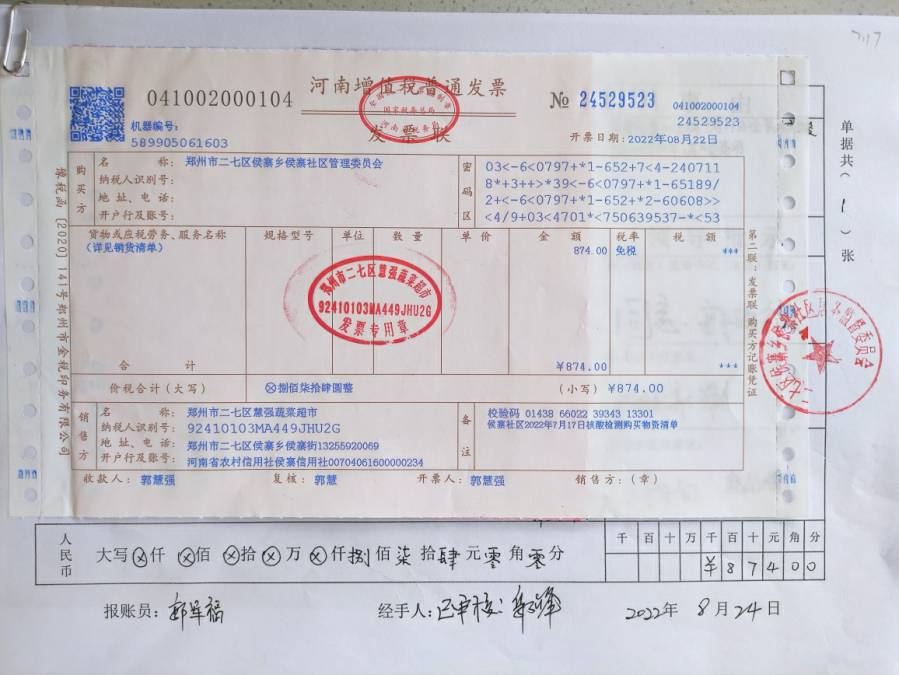 7.17
河南增值税普通发票
发票联
041002000104
№ 24529523
041002000104
24529523
机器编号:
589905061603
开票日期: 2022年08月22日
购买方
名 称: 郑州市二七区侯寨乡侯寨社区管理委员会
纳税人识别号:
地 址、电 话:
开户行及账号:
密码区
03<-6<0797+*1-652+7<4-240711
8*+3++>*39<-6<0797+*1-65189/
2+<-6<0797+*1-652+*2-60608>>
<4/9+03<4701*<750639537-*<53
货物或应税劳务、服务名称 规格型号 单位 数 量 单 价 金 额 税率 税 额
(详见销货清单) 874.00 免税 ***
郑州市二七区慧强蔬菜超市
92410103MA449JHU2G
发票专用章
合 计 ¥874.00 ***
价税合计(大写) ⊗捌佰柒拾肆圆整 (小写) ¥874.00
销售方
名 称: 郑州市二七区慧强蔬菜超市
纳税人识别号: 92410103MA449JHU2G
地 址、电 话: 郑州市二七区侯寨乡侯寨街13255920069
开户行及账号: 河南省农村信用社侯寨信用社00704061600000234
备注
校验码 01438 66022 39343 13301
侯寨社区2022年7月17日核酸检测购买物资清单
收款人: 郭慧强 复核: 郭慧 开票人: 郭慧强 销售方:(章)
豫税函〔2020〕141号郑州市金税印务有限公司
第二联:发票联 购买方记账凭证
单据共(1)张
人民币
大写⊗仟⊗佰⊗拾⊗万⊗仟捌佰柒拾肆元零角零分
千 百 十 万 千 百 十 元 角 分
¥ 8 7 4 0 0
报账员:
经手人:
2022年 8月24日